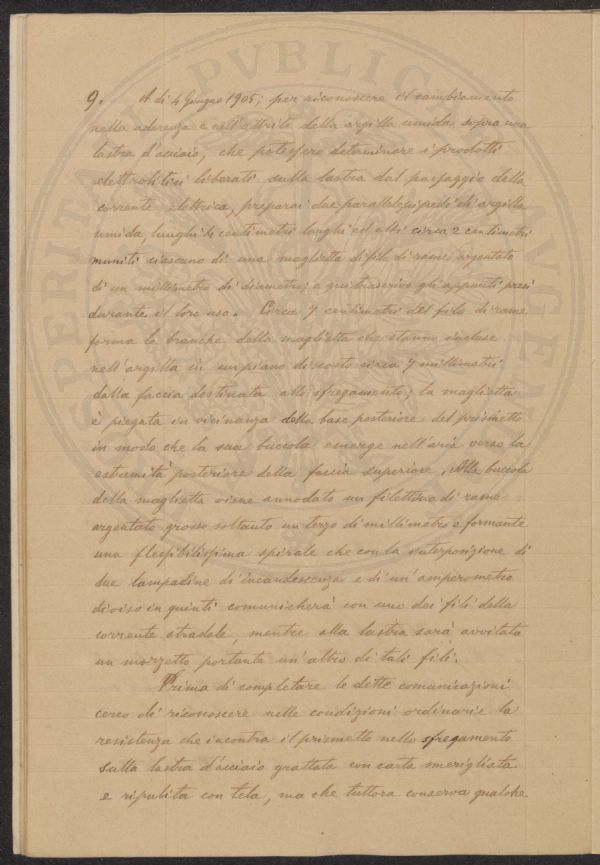 9. A di 4 Giugno 1905; per riconoscere il cambiamento
nella aderenza e nell'attrito della argilla umida sopra una
lastra d'acciaio, che potessero determinare i prodotti
elettrolitici liberati sulla lastra dal passaggio della
corrente elettrica, preparai due parallelepipedi di argilla
umida, lunghi 4 centimetri larghi ed alti circa 2 centimetri
muniti ciascuno di una maglietta di filo di rame argentato
di un millimetro di diametro; e qui trascrivo gli appunti presi
durante il loro uso. Circa 7 centimetri del filo di rame
forma le branche della maglietta che stanno incluse
nell'argilla in un piano discosto circa 7 millimetri
dalla faccia destinata allo sfregamento; la maglietta
è piegata in vicinanza della base posteriore del prismetto
in modo che la sua buccola emerge nell'aria verso la
estremità posteriore della faccia superiore. Alla buccola
della maglietta viene annodato un filettino di rame
argentato grosso soltanto un terzo di millimetro e formante
una flessibilissima spirale che con la interposizione di
due lampadine di incandescenza e di un'amperometro
diviso in quinti comunicherà con uno dei fili della
corrente stradale, mentre alla lastra sarà avvitato
un morzetto portante un'altro di tali fili.
Prima di completare le dette comunicazioni
cerco di riconoscere nelle condizioni ordinarie la
resistenza che incontra il prismetto nello sfregamento
sulla lastra d'acciaio grattata con carta smerigliata
e ripulita con tela, ma che tuttora conserva qualche
PVBLICA